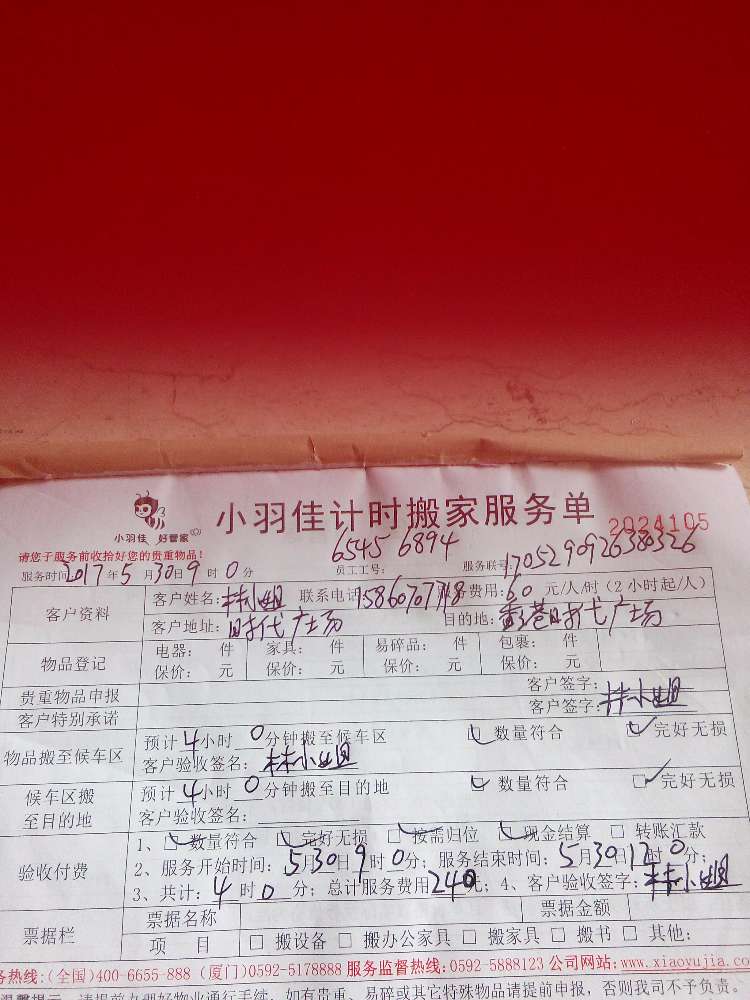 小羽佳计时搬家服务单
小羽佳 好管家
2024105
请您于服务前收拾好您的贵重物品！
6545 6894
服务时间2017年5月30日9时0分 员工工号： 服务联号：
客户资料
客户姓名：林小姐 联系电话 服务费用：60 元/人/时（2小时起/人）
客户地址：时代广场 目的地：香港时代广场
物品登记
电器： 件 家具： 件 易碎品： 件 包裹： 件
保价： 元 保价： 元 保价： 元 保价： 元
贵重物品申报 客户签字：
客户特别承诺 客户签字：林小姐
物品搬至候车区
预计4小时0分钟搬至候车区 数量符合 完好无损
客户验收签名：林小姐
候车区搬至目的地
预计4小时0分钟搬至目的地 数量符合 完好无损
客户验收签名：
验收付费
1、数量符合 完好无损 按需归位 现金结算 转账汇款
2、服务开始时间：5月30日9时0分；服务结束时间：5月30日12时0分；
3、共计：4时0分；总计服务费用240元；4、客户验收签字：林小姐
票据栏
票据名称 票据金额
项 目 搬设备 搬办公家具 搬家具 搬书 其他：
务热线：(全国)400-6655-888 (厦门)0592-5178888 服务监督热线：0592-5888123 公司网站：www.xiaoyujia.co
请提前办理好物业通行手续，如有贵重、易碎或其它特殊物品请提前申报，否则我司不予负责。